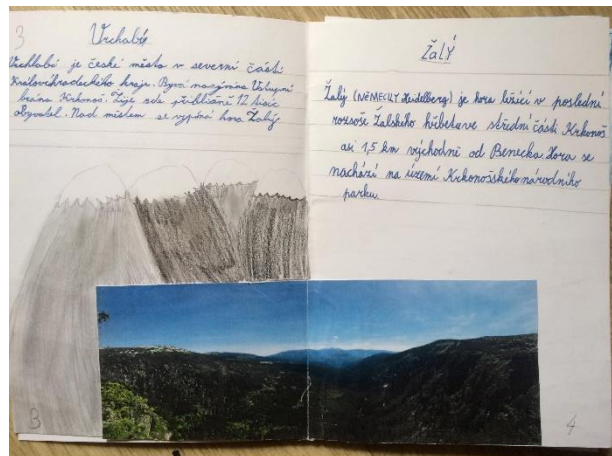 3
Vrchlabí
Vrchlabí je české město v severní části
Královéhradeckého kraje. Bývá nazývána Vstupní
brána Krkonoš. Žije zde přibližně 12 tisíc
obyvatel. Nad městem se vypíná hora Žalý
3
Žalý
Žalý (NĚMECKY Heidelberg) je hora ležící v poslední
rozsoše Žalského hřbetu ve střední části Krkonoš
asi 1,5 km východně od Benecka. Hora se
nachází na území Krkonošského národního
parku.
4